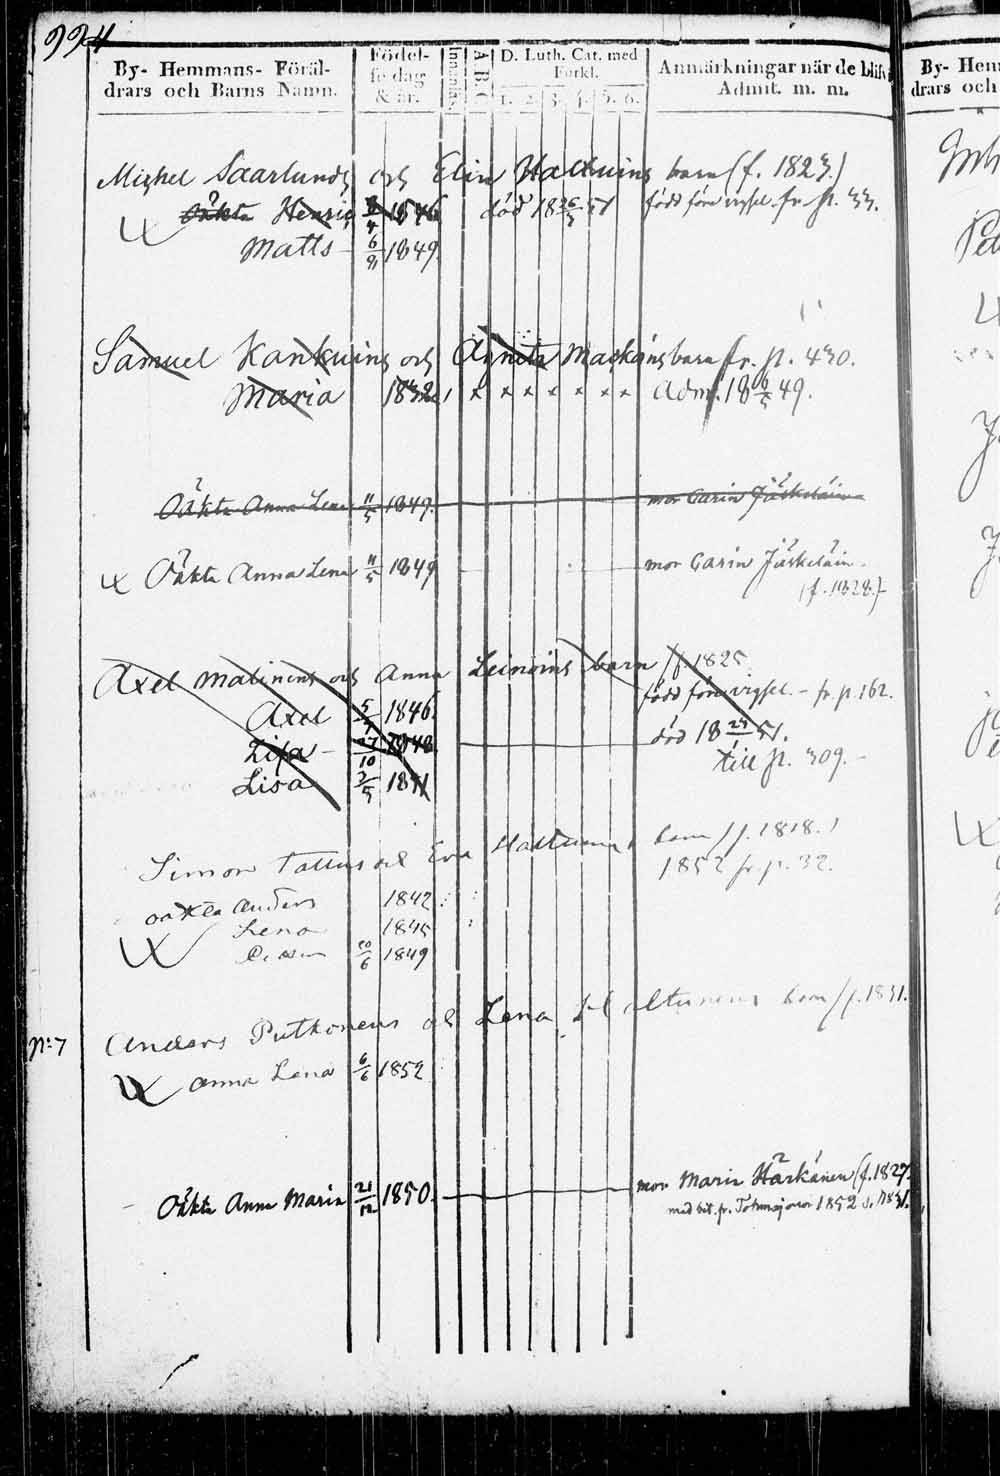 224
By- Hemmans- Föräl-
drars och Barns Namn.
Födel-
se dag
& år.
Innanläs.
A B C
D. Luth. Cat. med
Förkl.
1. 2. 3. 4. 5. 6.
Anmärkningar när de blifvi
Admit. m. m.
By- Hem
drars och
Michel Saarlunds och Elin Hattuins barn (f. 1823.)
Oäkta Henric 1846. död 18 26/3 51 född före vigsel. fr. p. 33.
Matts 6/91 1849.
Samuel Kankuins och Agneta Maskäns barn fr. p. 430.
Maria 1832 x x x x x x x Adm. 18 6/5 49.
Oäkta Anna Lena 11/5 1849. mor Carin Jäskeläin
Oäkta Anna Lena 11/5 1849 mor Carin Jäskeläin.
(f. 1828.)
Axel Matinens och Anna Leinoins barn (f. 1825
född före vigsel. - fr. p. 162.
Axel 5/7 1846.
Lisa 27/10 1848 död 18 24/1 51.
till p. 309.
Lisa 3/5 1851
Simon Tattus och Eva Hattunens barn (f. 1818.)
1852 fr. p. 32.
oäkta Anders 1842
Lena 1845
20/6 1849
No 7 Anders Putkonens och Lena barn (f. 1831.
Anna Lena 6/6 1852
Oäkta Anna Maria 21/12 1850. mor Maria Härkänen (f. 1827.
med bet. fr. 1852 s.